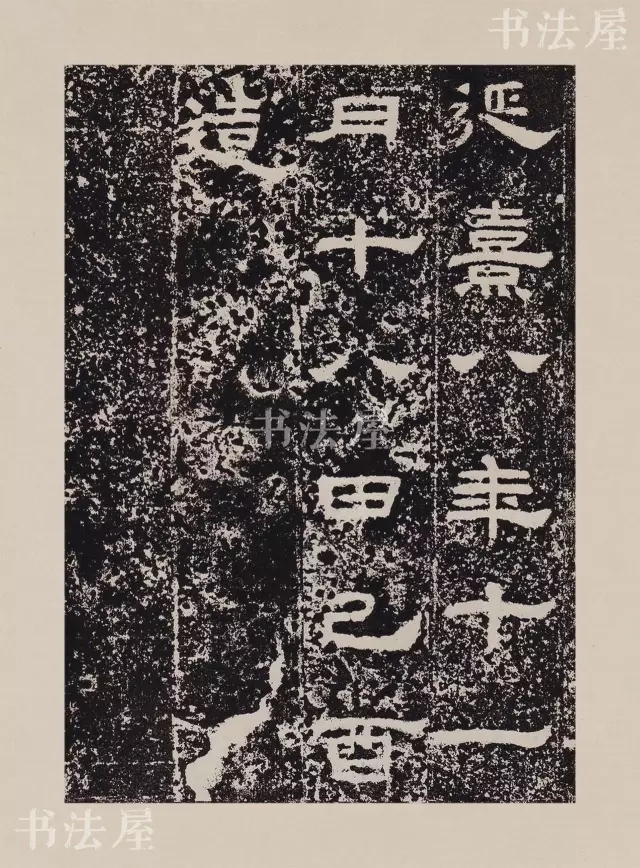 书法屋
延熹八年十一
月十八甲己酉
造
书法屋
书法屋